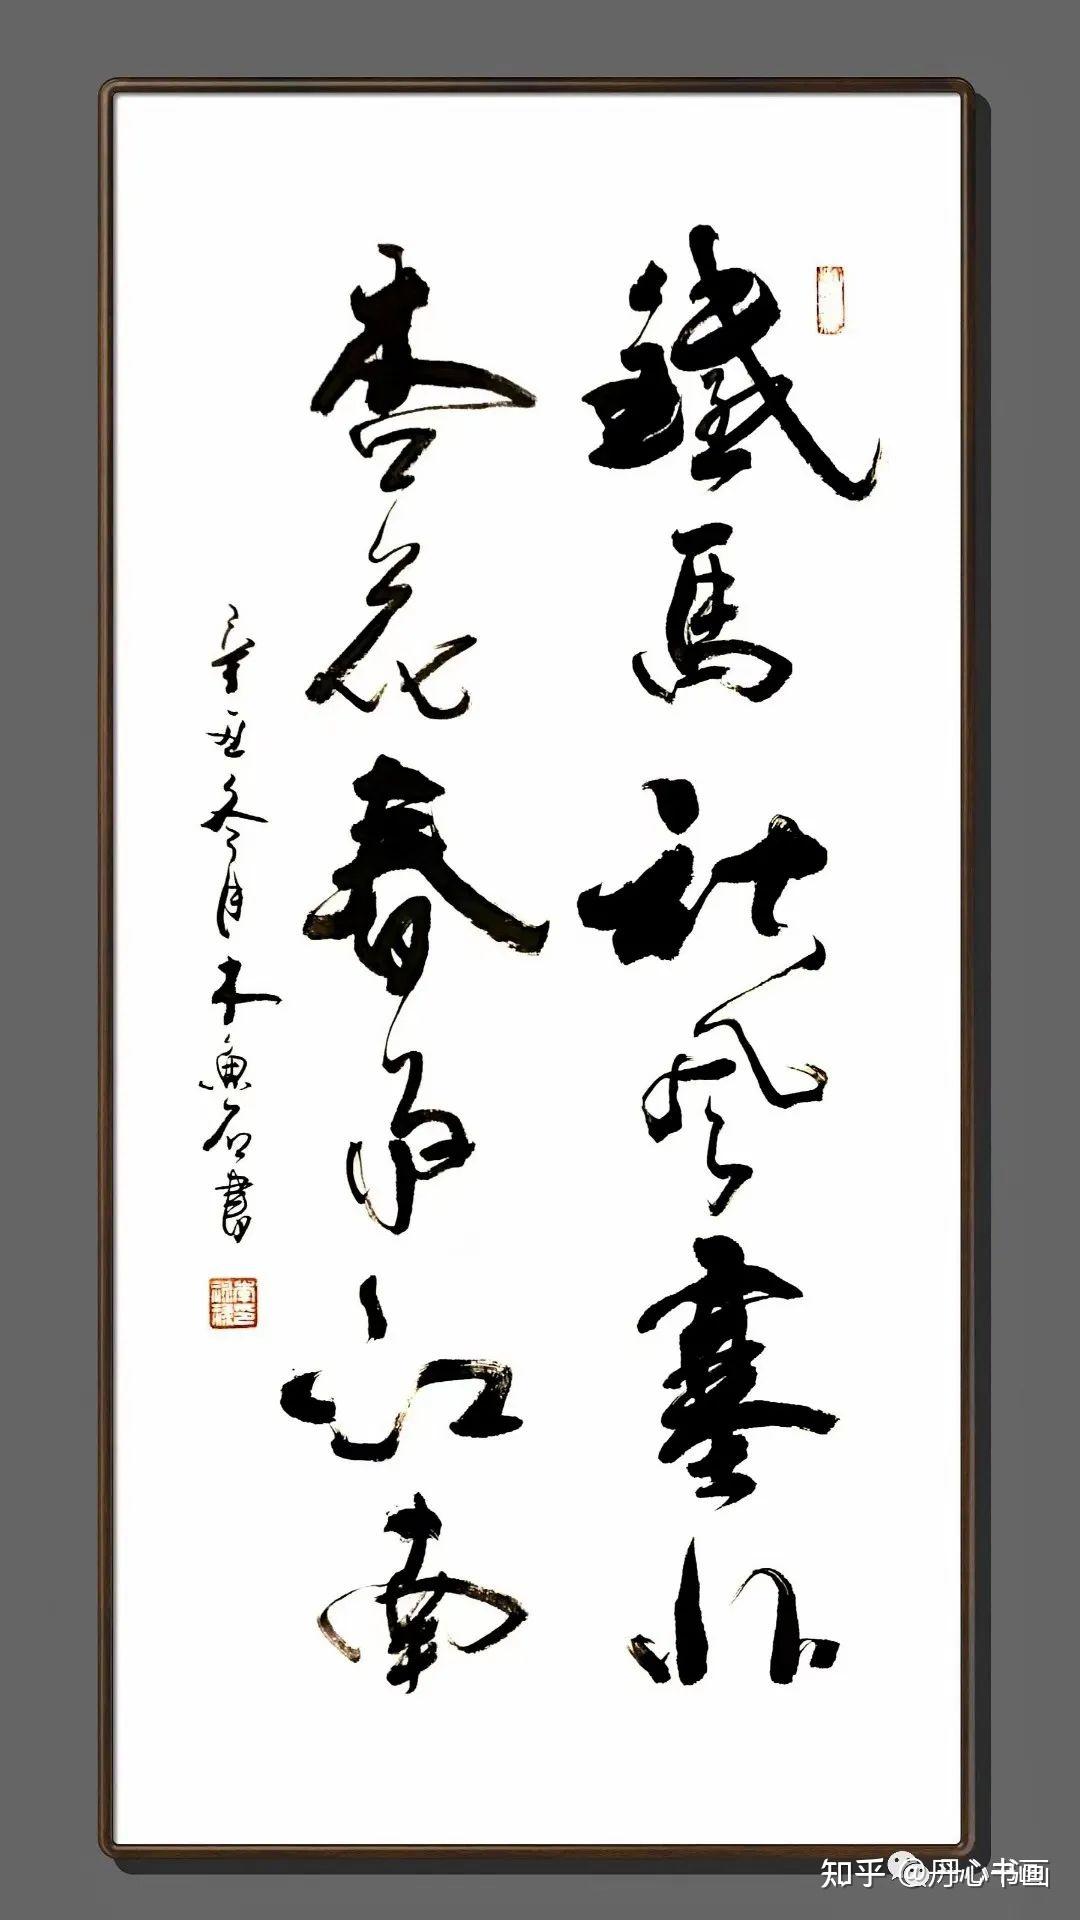 鐵馬秋風塞北
杏花春雨江南
辛丑冬月木魚石書
知乎 @丹心书画